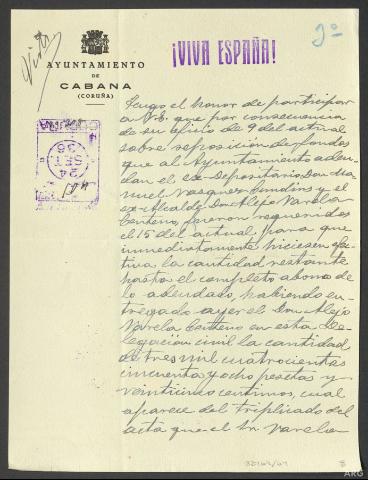 ¡VIVA ESPAÑA!
2º
Visto
AYUNTAMIENTO
DE
CABANA
(CORUÑA)
24 SET. 36
Tengo el honor de participar
a Vd. que por consecuencia
de su oficio de 9 del actual
sobre reposición de fondos
que al Ayuntamiento adeu-
dan el ex-Depositario Don Ma
nuel Vasquez Gundins y el
ex-Alcalde Don Alejo Varela
Centeno, fueron requeridos
el 15 del actual, para que
inmediatamente hiciesen efec
tiva la cantidad restante
hasta el completo abono de
lo adeudado, habiendo en-
tregado ayer el Don Alejo
Varela Centeno en esta De-
legación civil la cantidad
de tres mil cuatrocientas
cincuenta y ocho pesetas y
veinticinco centimos, cual
aparece del triplicado del
acta que el Sr. Varela
ARG